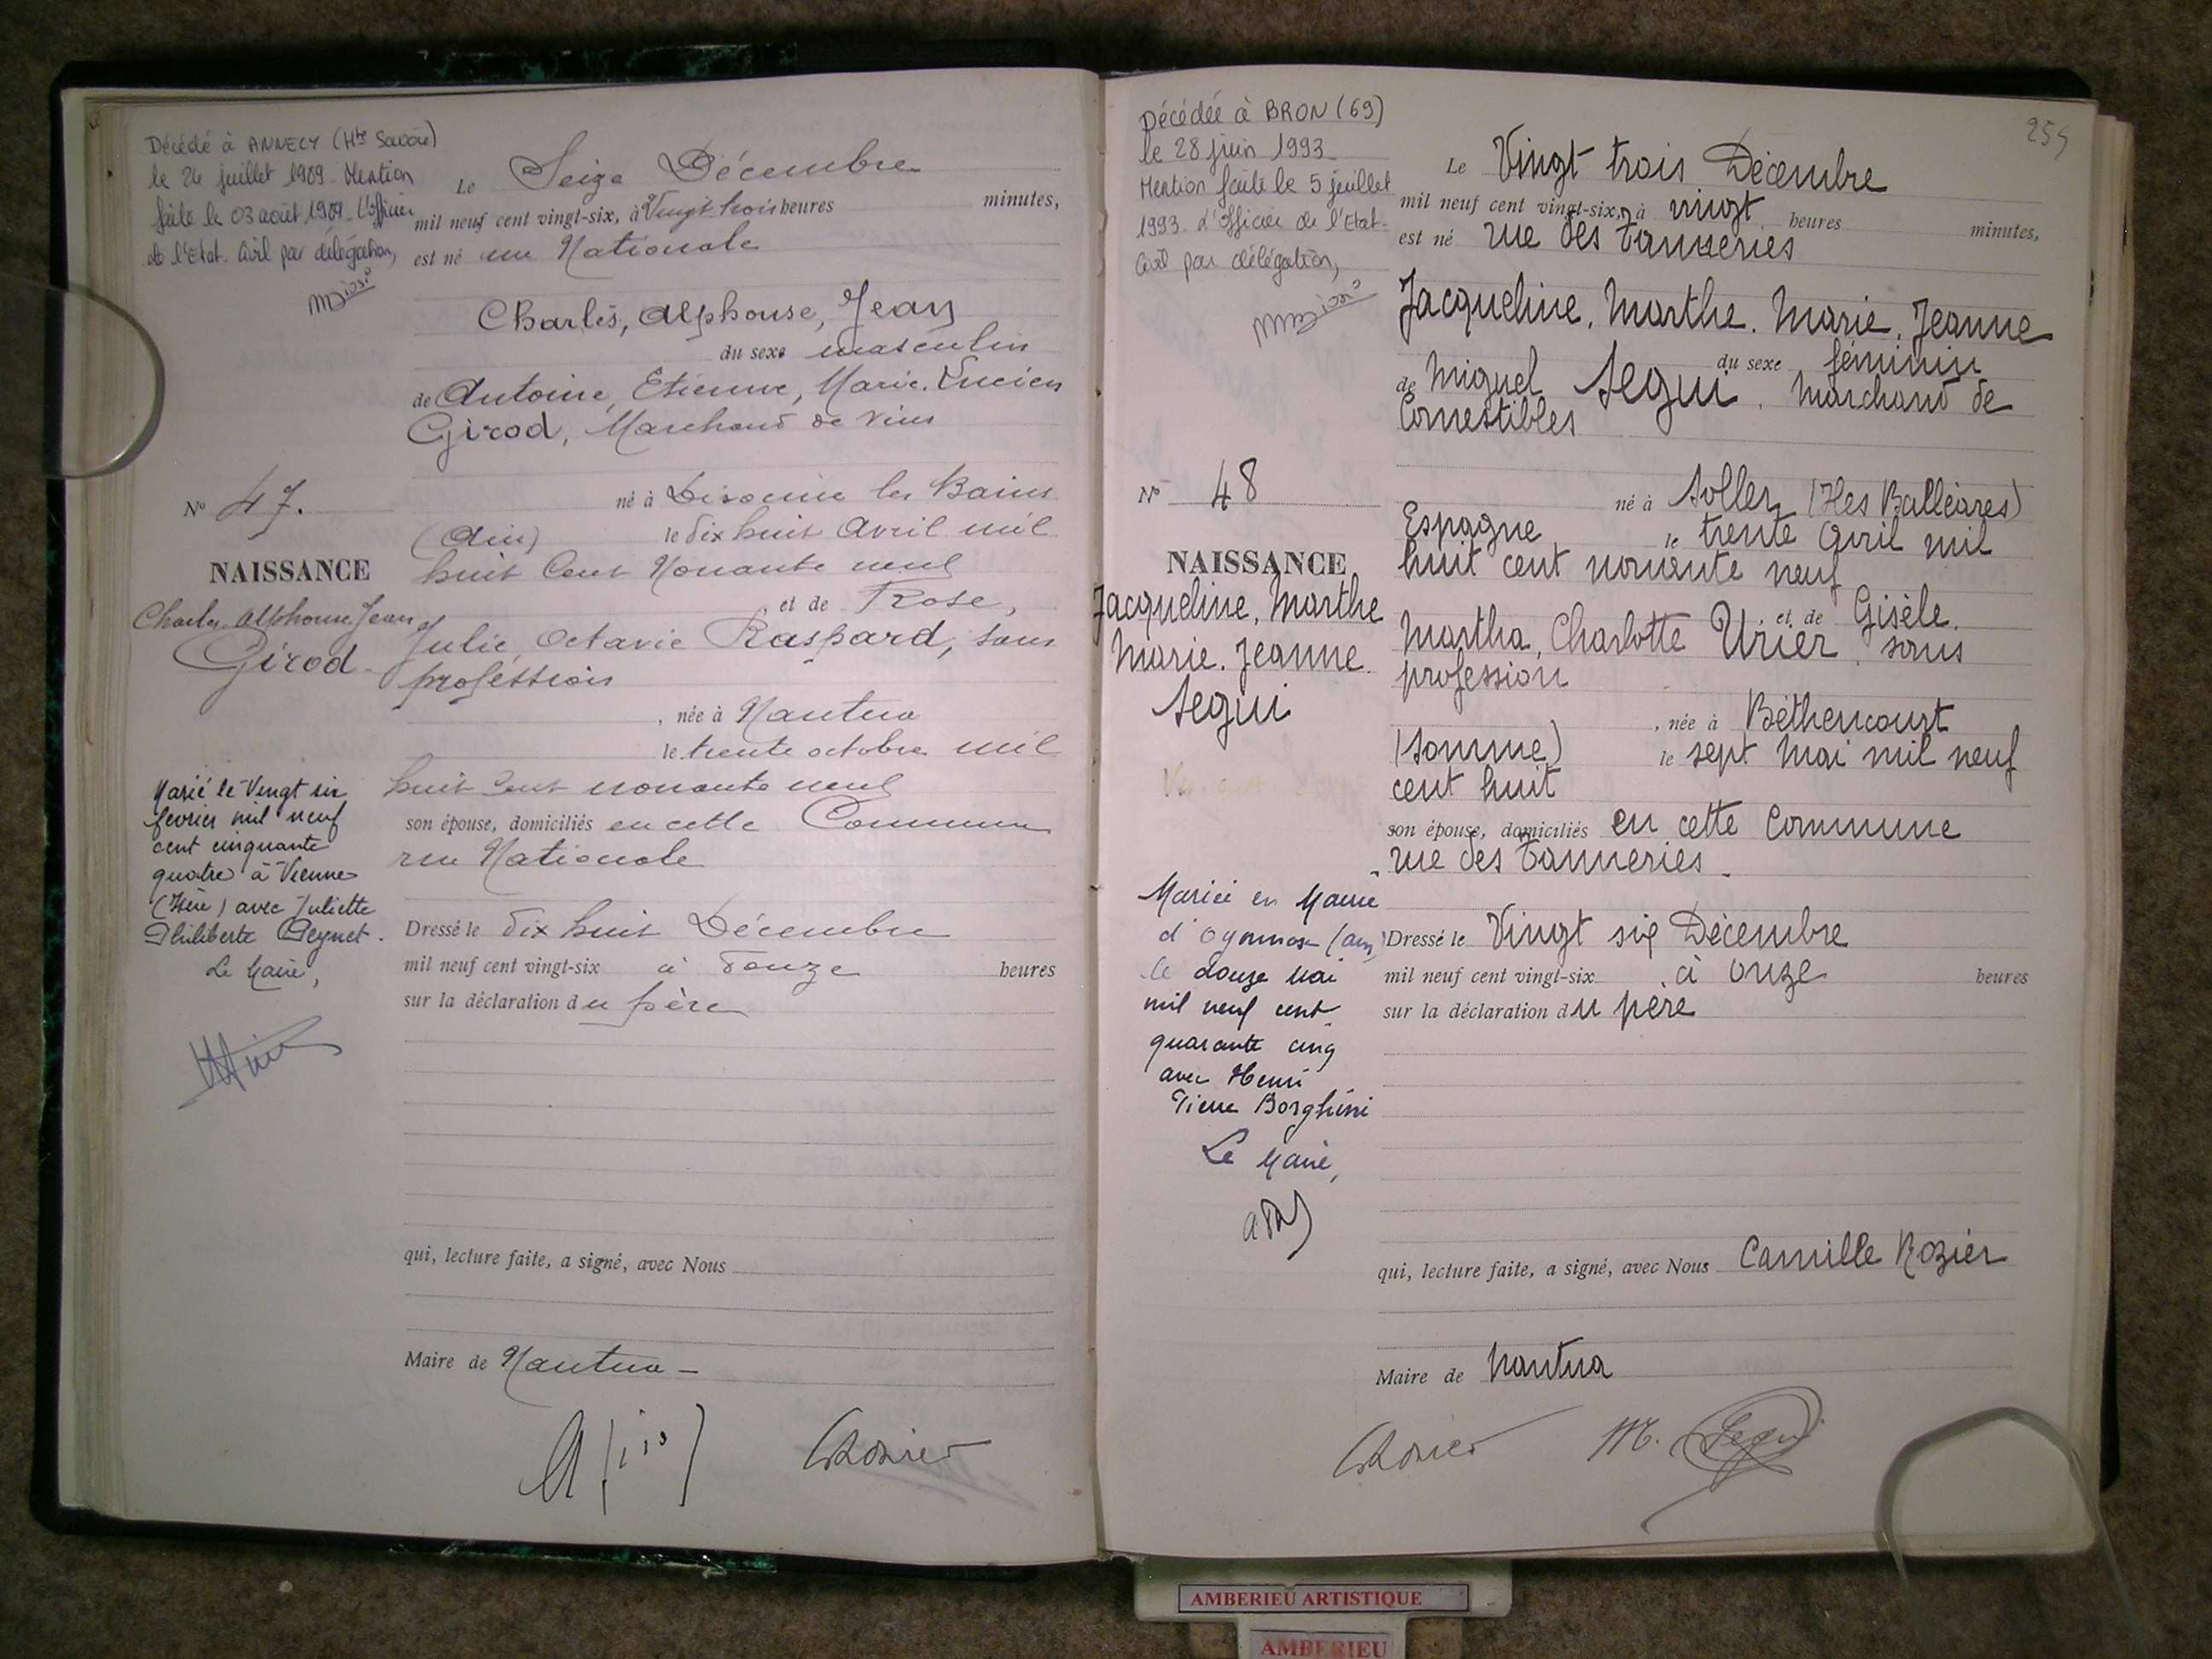 Décédé à ANNECY (Hte Savoie)
le 26 juillet 1989. Mention
faite le 03 août 1989. L'officier
de l'Etat-Civil par délégation,
Le Seize Décembre
mil neuf cent vingt-six, à Vingt trois heures minutes,
est né rue Nationale
Charles, Alphonse, Jean
du sexe masculin
de Antoine, Etienne, Marie, Lucien
Girod, Marchand de vins
No 47.
né à Divonne les Bains
(Ain) le dix huit Avril mil
huit Cent Nonante neuf
NAISSANCE
Charles Alphonse Jean
Girod
, et de Rose,
Julie, Octavie Raspard, sans
profession
, née à Nantua
le trente octobre mil
huit Cent nonante neuf
son épouse, domiciliés en cette Commune
rue Nationale
Marié le Vingt six
février mil neuf
cent cinquante
quatre à Vienne
(Isère) avec Juliette
Philiberte Peynet.
Le Maire,
Dressé le dix huit Décembre
mil neuf cent vingt-six à douze heures
sur la déclaration du père
qui, lecture faite, a signé, avec Nous
Maire de Nantua
CRozier
254
Décédée à BRON (69)
le 28 juin 1993
Mention faite le 5 juillet
1993. L'officier de l'Etat-
Civil par délégation,
Le Vingt trois Décembre
mil neuf cent vingt-six, à vingt heures minutes,
est né rue des Tanneries
Jacqueline, Marthe, Marie, Jeanne
du sexe féminin
de Miguel Segui, Marchand de
Comestibles
No 48
né à Soller (Iles Balléares)
Espagne le trente Avril mil
huit cent nonante neuf
NAISSANCE
Jacqueline, Marthe
Marie, Jeanne
Segui
, et de Gisèle,
Martha, Charlotte Urier, sans
profession
, née à Béthencourt
(Somme) le sept Mai mil neuf
cent huit
son épouse, domiciliés en cette Commune
rue des Tanneries.
Mariée en Mairie
d'Oyonnax (Ain)
le douze mai
mil neuf cent
quarante cinq
avec Henri
Pierre Borghini
Le Maire,
Dressé le Vingt six Décembre
mil neuf cent vingt-six à onze heures
sur la déclaration du père
qui, lecture faite, a signé, avec Nous Camille Rozier
Maire de Nantua
CRozier M. Segui
AMBERIEU ARTISTIQUE
AMBERIEU